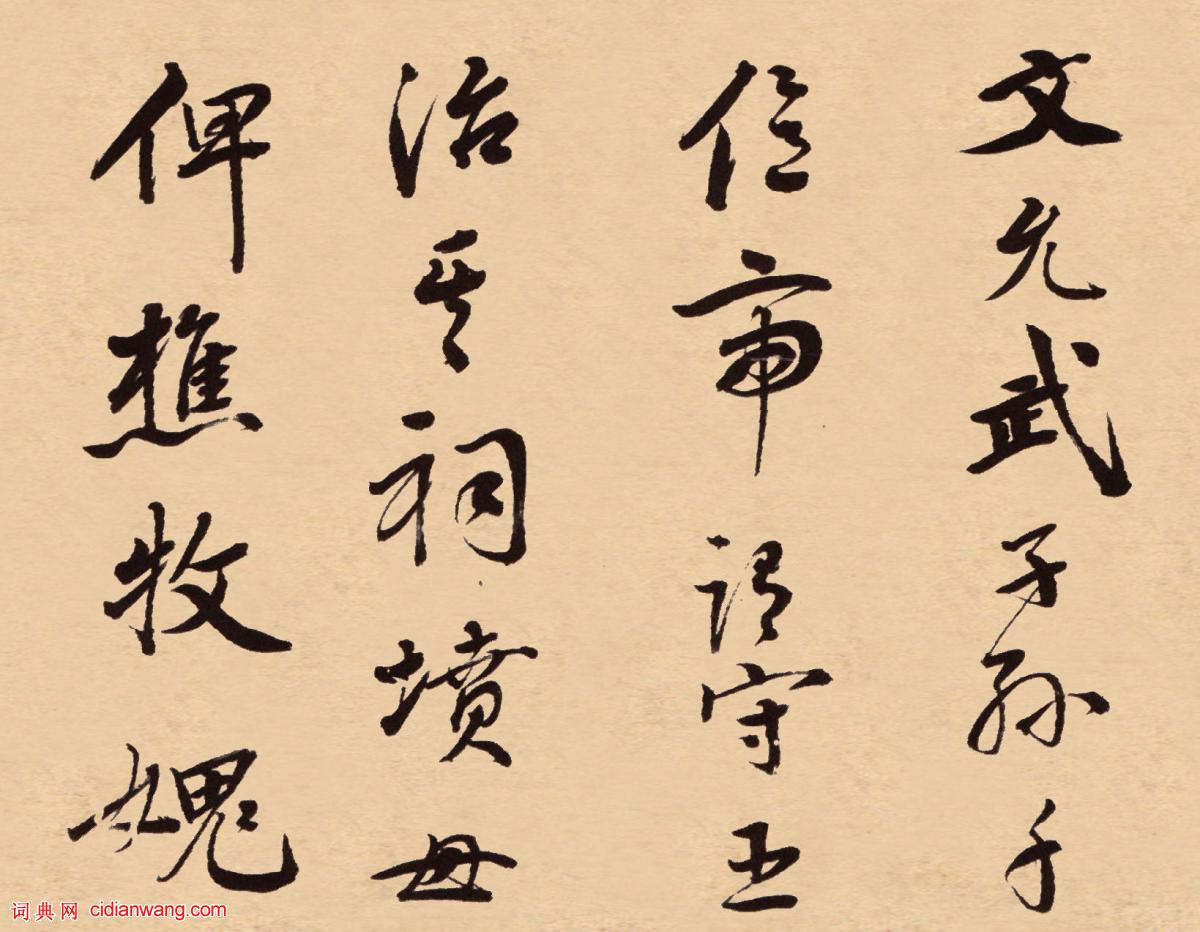 文允武子孫千
億帝謂守臣
治其祠墳毋
俾樵牧媿
词典网 cidianwang.com